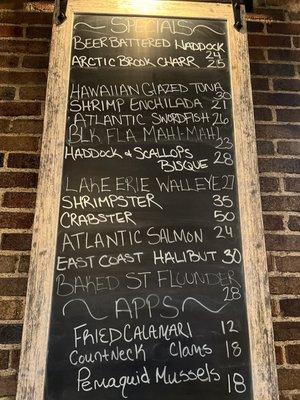 SPECIALS
BEER BATTERED HADDOCK
24
ARCTIC BROOK CHARR 25
HAWAIIAN GLAZED TUNA
30
SHRIMP ENCHILADA 21
ATLANTIC SWORDFISH 26
BLK FLA MAHI-MAHI
23
HADDOCK & SCALLOPS
BISQUE 28
LAKE ERIE WALLEYE 27
SHRIMPSTER 35
CRABSTER 50
ATLANTIC SALMON 24
EAST COAST HALIBUT 30
BAKED ST FLOUNDER
28
APPS
FRIED CALAMARI 12
COUNTNECK CLAMS 18
PEMAQUID MUSSELS 18